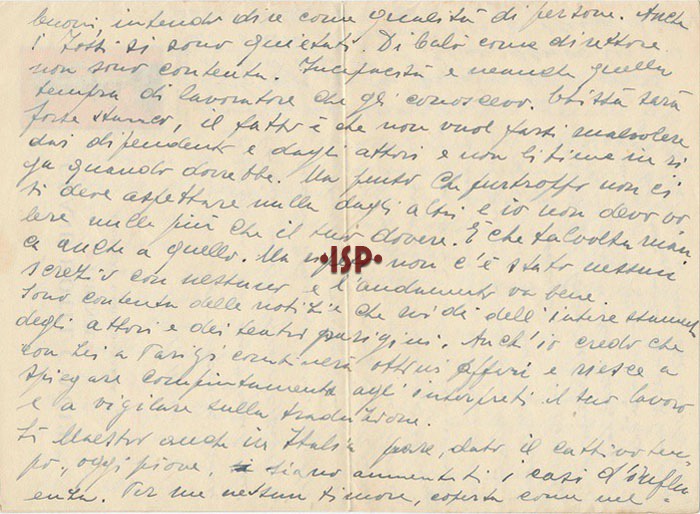 buoni, intendo dire come qualità di persone. Anche
i Totti si sono quietati. Di Balò come direttore
non sono contenta. Incapacità e neanche quella
tempra di lavoratore che gli conoscevo. Chissà sarà
forse stanco, il fatto è che non vuol farsi malvolere
dai dipendenti e dagli attori e non li tiene in ri
ga quando dovrebbe. Ma penso che purtroppo non ci
si deve aspettare nulla dagli altri e io non devo vo
lere nulla più che il tuo dovere. E che talvolta man
ca anche a quello. Ma non c'è stato nessun
screzio con nessuno e l'andamento va bene.
Sono contenta delle notizie che mi dà dell'interessamento
degli attori e dei teatri parigini. Anch'io credo che
con Lei a Parigi combinerà ottimi affari e riesce a
spiegare compiutamente agli interpreti il suo lavoro
e a vigilare sulla traduzione.
Sì Maestro anche in Italia pare, dato il cattivo tem
po, oggi piove, siano aumentati i casi d'influ
enza. Per me nessun timore, coperta come
ISP